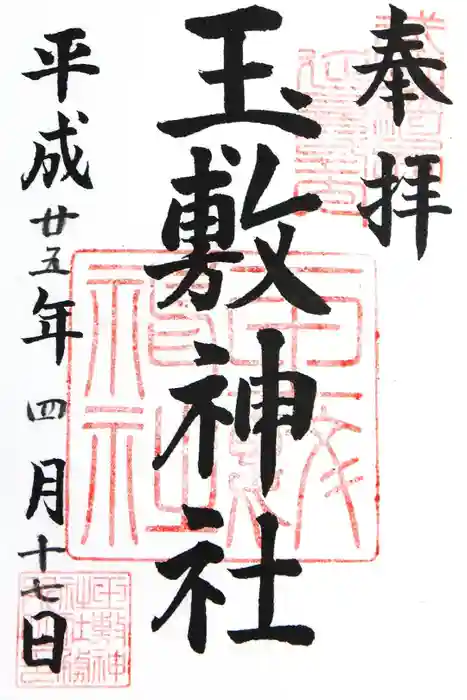 奉拝
玉敷神社
平成廿五年四月十七日
玉敷神社